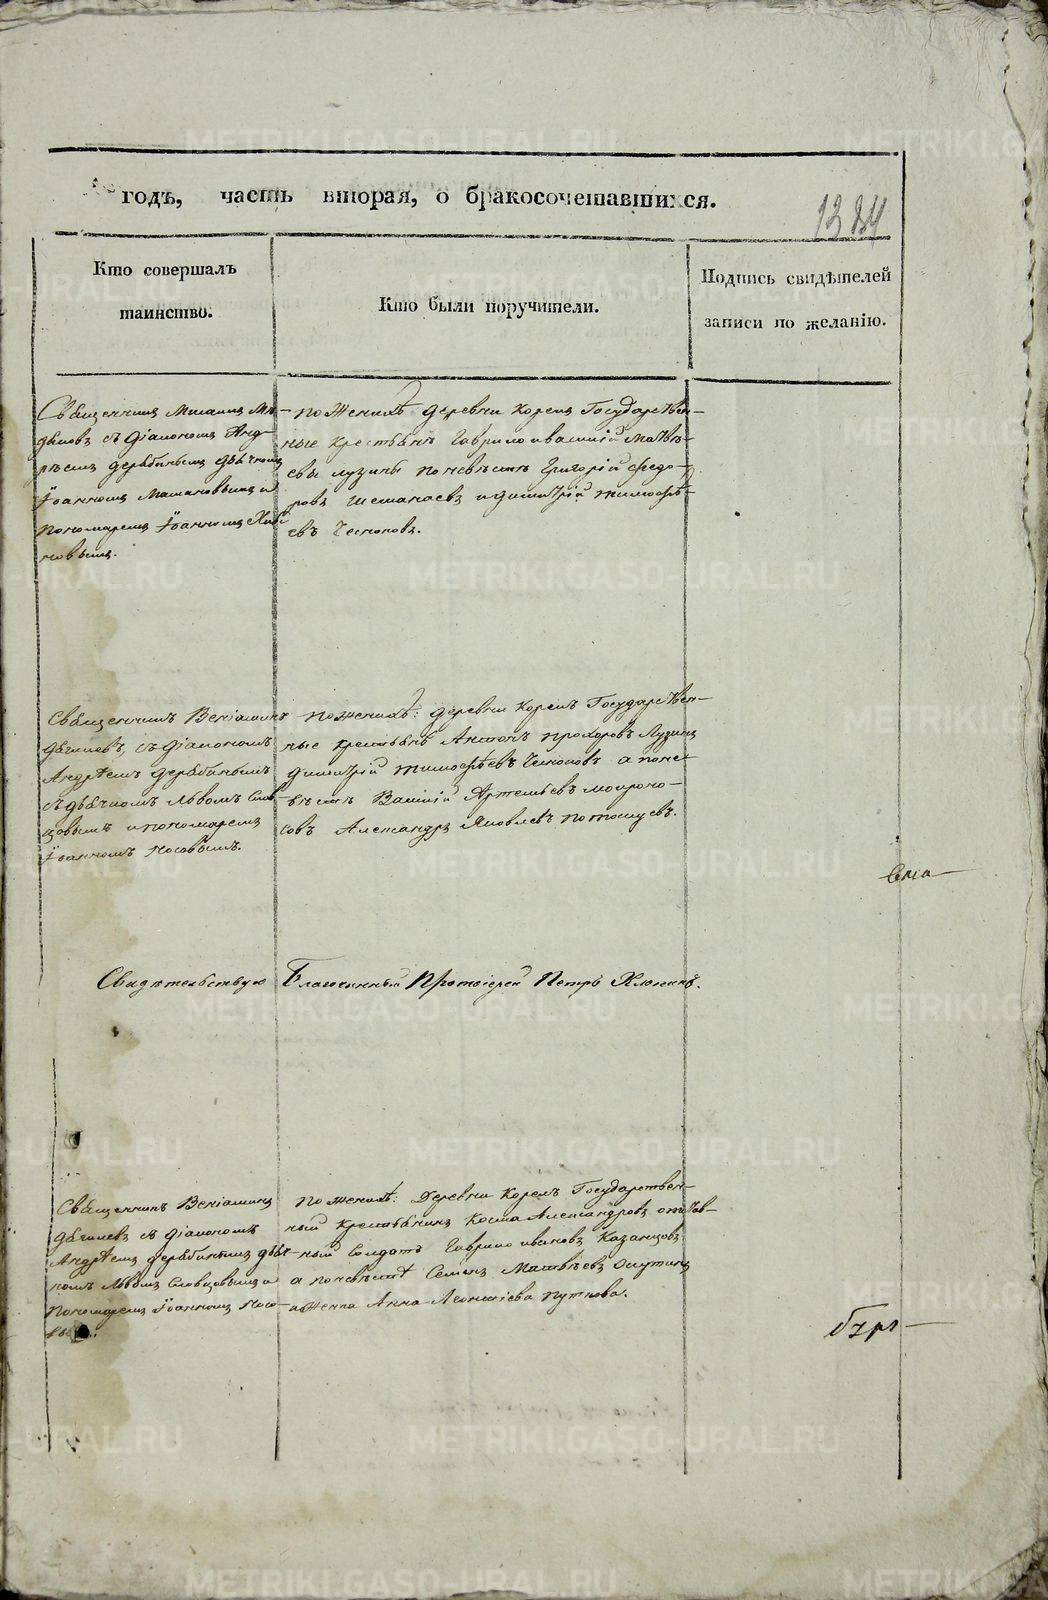 годъ, часть вторая, о бракосочетавшихся.
1384
Кто совершалъ
таинство.
Кто были поручители.
Подпись свидѣтелей
записи по желанію.
Священникъ Михаилъ
съ діакономъ Анд-
реемъ Дерябинымъ дьячкомъ
Іоанномъ и
пономаремъ Іоанномъ
новымъ.
По женихѣ деревни Корелъ Государствен-
ные крестьяне Гаврило и Василій Матвѣ-
евы Лузины по невѣстѣ Григорій Федо-
ровъ и Димитрій Тимофѣ-
евъ Чесноковъ.
Священникъ Веніаминъ
Дягилевъ, съ діакономъ
Андреемъ Дерябинымъ
съ дьячкомъ Львомъ Слов-
цовымъ и пономаремъ
Іоанномъ Носовымъ.
По женихѣ: деревни Корелъ Государствен-
ные крестьяне Антонъ Прохоровъ Лузинъ
Димитрій Тимофѣевъ Чесноковъ а по не-
вѣстѣ Василій Артемьевъ Мокроно-
совъ Александръ Яковлевъ Потоскуевъ.
Свидетельствую Благочинный Протоіерей Петръ
Священникъ Веніаминъ
Дягилевъ съ діакономъ
Андреемъ Дерябинымъ дьяч-
комъ Львомъ Словцовымъ и
пономаремъ Іоанномъ Носо-
По женихѣ: Деревни Корелъ Государствен-
ный крестьянинъ Козма Александровъ отстав-
ный Солдатъ Гаврило Ивановъ Казанцовъ
а по невѣстѣ Семенъ Матвѣевъ
и женка Анна Леонтіева
METRIKI.GASO-URAL.RU